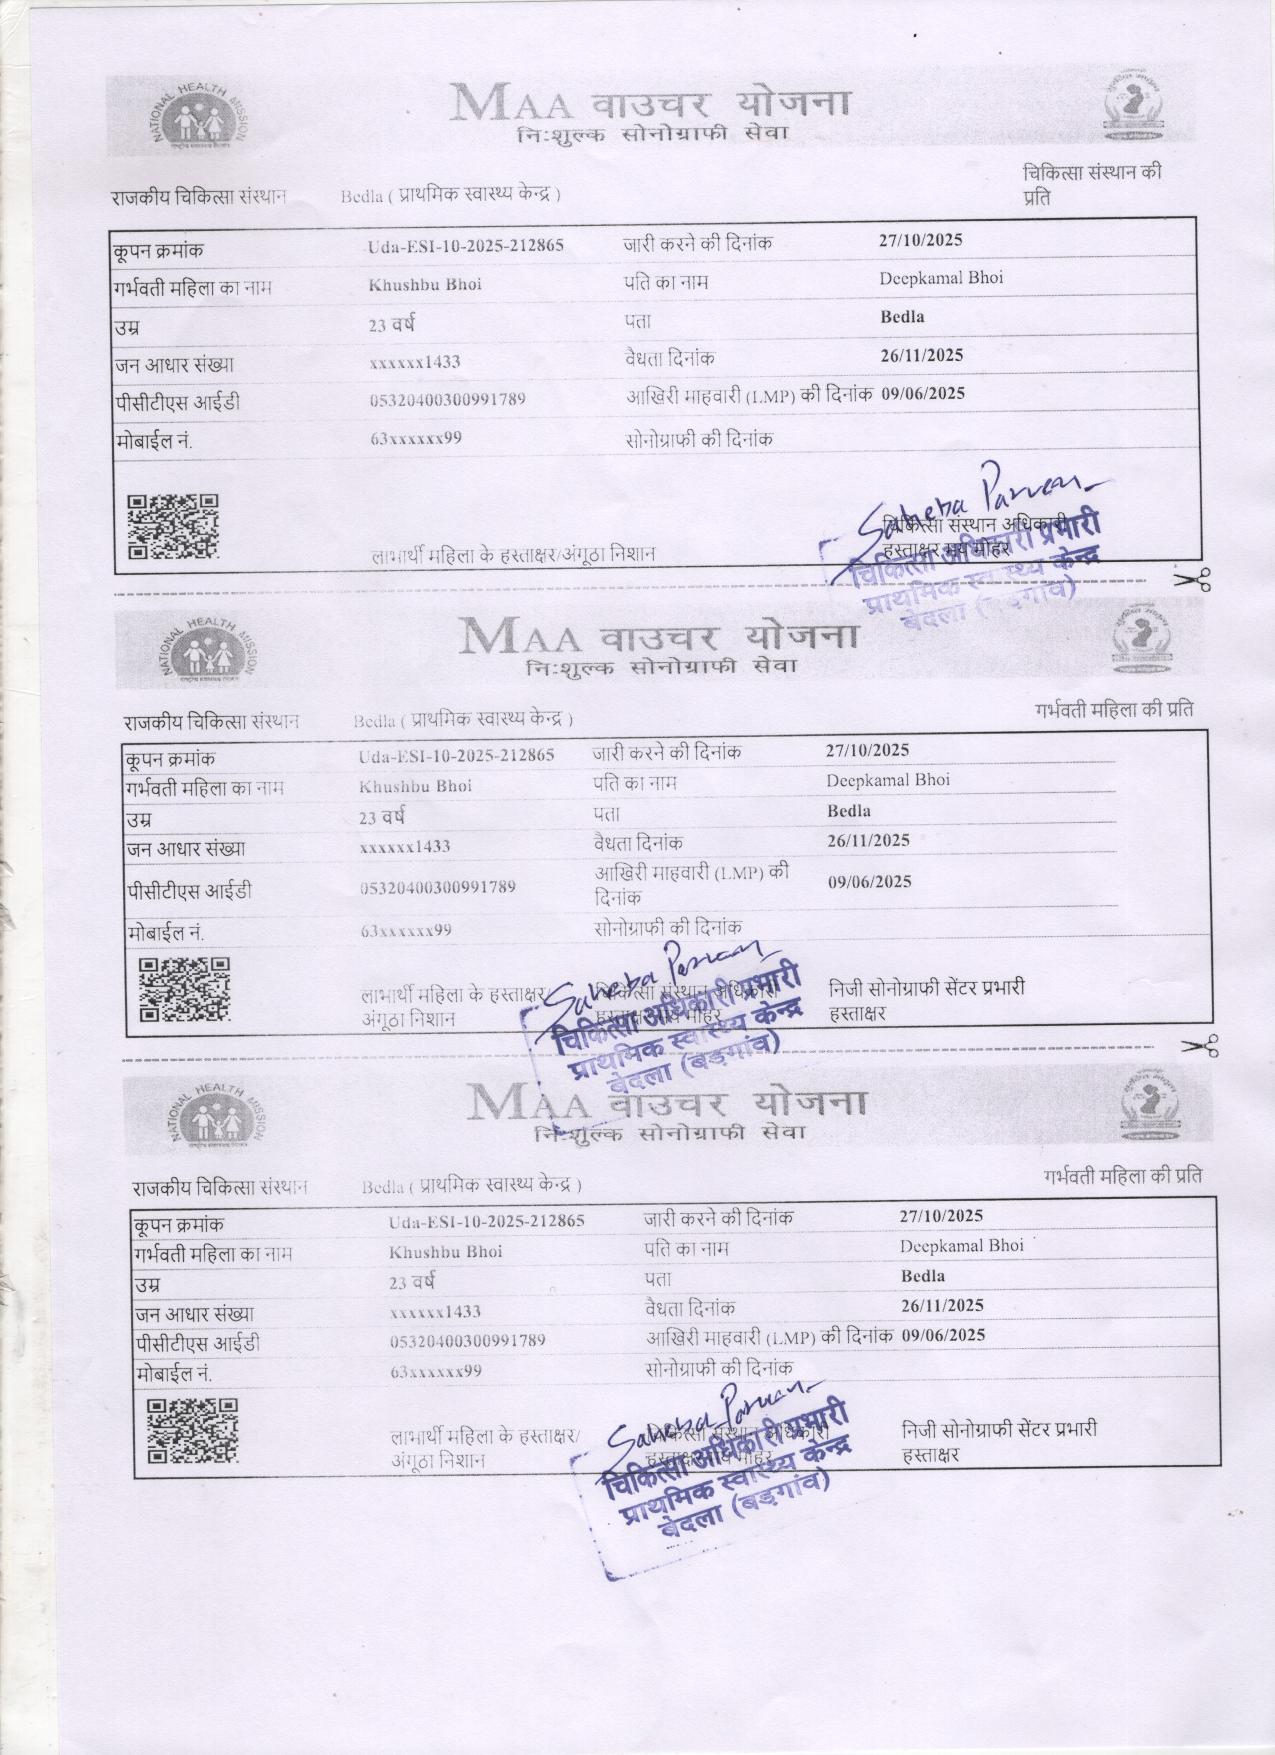 NATIONAL HEALTH MISSION
MAA वाउचर योजना
नि:शुल्क सोनोग्राफी सेवा
राजकीय चिकित्सा संस्थान Bedla ( प्राथमिक स्वास्थ्य केन्द्र ) चिकित्सा संस्थान की
प्रति
कूपन क्रमांक Uda-ESI-10-2025-212865 जारी करने की दिनांक 27/10/2025
गर्भवती महिला का नाम Khushbu Bhoi पति का नाम Deepkamal Bhoi
उम्र 23 वर्ष पता Bedla
जन आधार संख्या xxxxxx1433 वैधता दिनांक 26/11/2025
पीसीटीएस आईडी 05320400300991789 आखिरी माहवारी (LMP) की दिनांक 09/06/2025
मोबाईल नं. 63xxxxxx99 सोनोग्राफी की दिनांक
Saheba Parveen
लाभार्थी महिला के हस्ताक्षर/अंगूठा निशान चिकित्सा संस्थान अधिकारी
हस्ताक्षर मय मोहर
चिकित्सा अधिकारी प्रभारी
प्राथमिक स्वास्थ्य केन्द्र
बेदला (बड़गांव)
NATIONAL HEALTH MISSION
MAA वाउचर योजना
नि:शुल्क सोनोग्राफी सेवा
राजकीय चिकित्सा संस्थान Bedla ( प्राथमिक स्वास्थ्य केन्द्र ) गर्भवती महिला की प्रति
कूपन क्रमांक Uda-ESI-10-2025-212865 जारी करने की दिनांक 27/10/2025
गर्भवती महिला का नाम Khushbu Bhoi पति का नाम Deepkamal Bhoi
उम्र 23 वर्ष पता Bedla
जन आधार संख्या xxxxxx1433 वैधता दिनांक 26/11/2025
पीसीटीएस आईडी 05320400300991789 आखिरी माहवारी (LMP) की
दिनांक 09/06/2025
मोबाईल नं. 63xxxxxx99 सोनोग्राफी की दिनांक
Saheba Parveen
लाभार्थी महिला के हस्ताक्षर/ चिकित्सा संस्थान अधिकारी निजी सोनोग्राफी सेंटर प्रभारी
अंगूठा निशान हस्ताक्षर मय मोहर हस्ताक्षर
चिकित्सा अधिकारी प्रभारी
प्राथमिक स्वास्थ्य केन्द्र
बेदला (बड़गांव)
NATIONAL HEALTH MISSION
MAA वाउचर योजना
नि:शुल्क सोनोग्राफी सेवा
राजकीय चिकित्सा संस्थान Bedla ( प्राथमिक स्वास्थ्य केन्द्र ) गर्भवती महिला की प्रति
कूपन क्रमांक Uda-ESI-10-2025-212865 जारी करने की दिनांक 27/10/2025
गर्भवती महिला का नाम Khushbu Bhoi पति का नाम Deepkamal Bhoi
उम्र 23 वर्ष पता Bedla
जन आधार संख्या xxxxxx1433 वैधता दिनांक 26/11/2025
पीसीटीएस आईडी 05320400300991789 आखिरी माहवारी (LMP) की दिनांक 09/06/2025
मोबाईल नं. 63xxxxxx99 सोनोग्राफी की दिनांक
Saheba Parveen
लाभार्थी महिला के हस्ताक्षर/ चिकित्सा संस्थान अधिकारी निजी सोनोग्राफी सेंटर प्रभारी
अंगूठा निशान हस्ताक्षर मय मोहर हस्ताक्षर
चिकित्सा अधिकारी प्रभारी
प्राथमिक स्वास्थ्य केन्द्र
बेदला (बड़गांव)